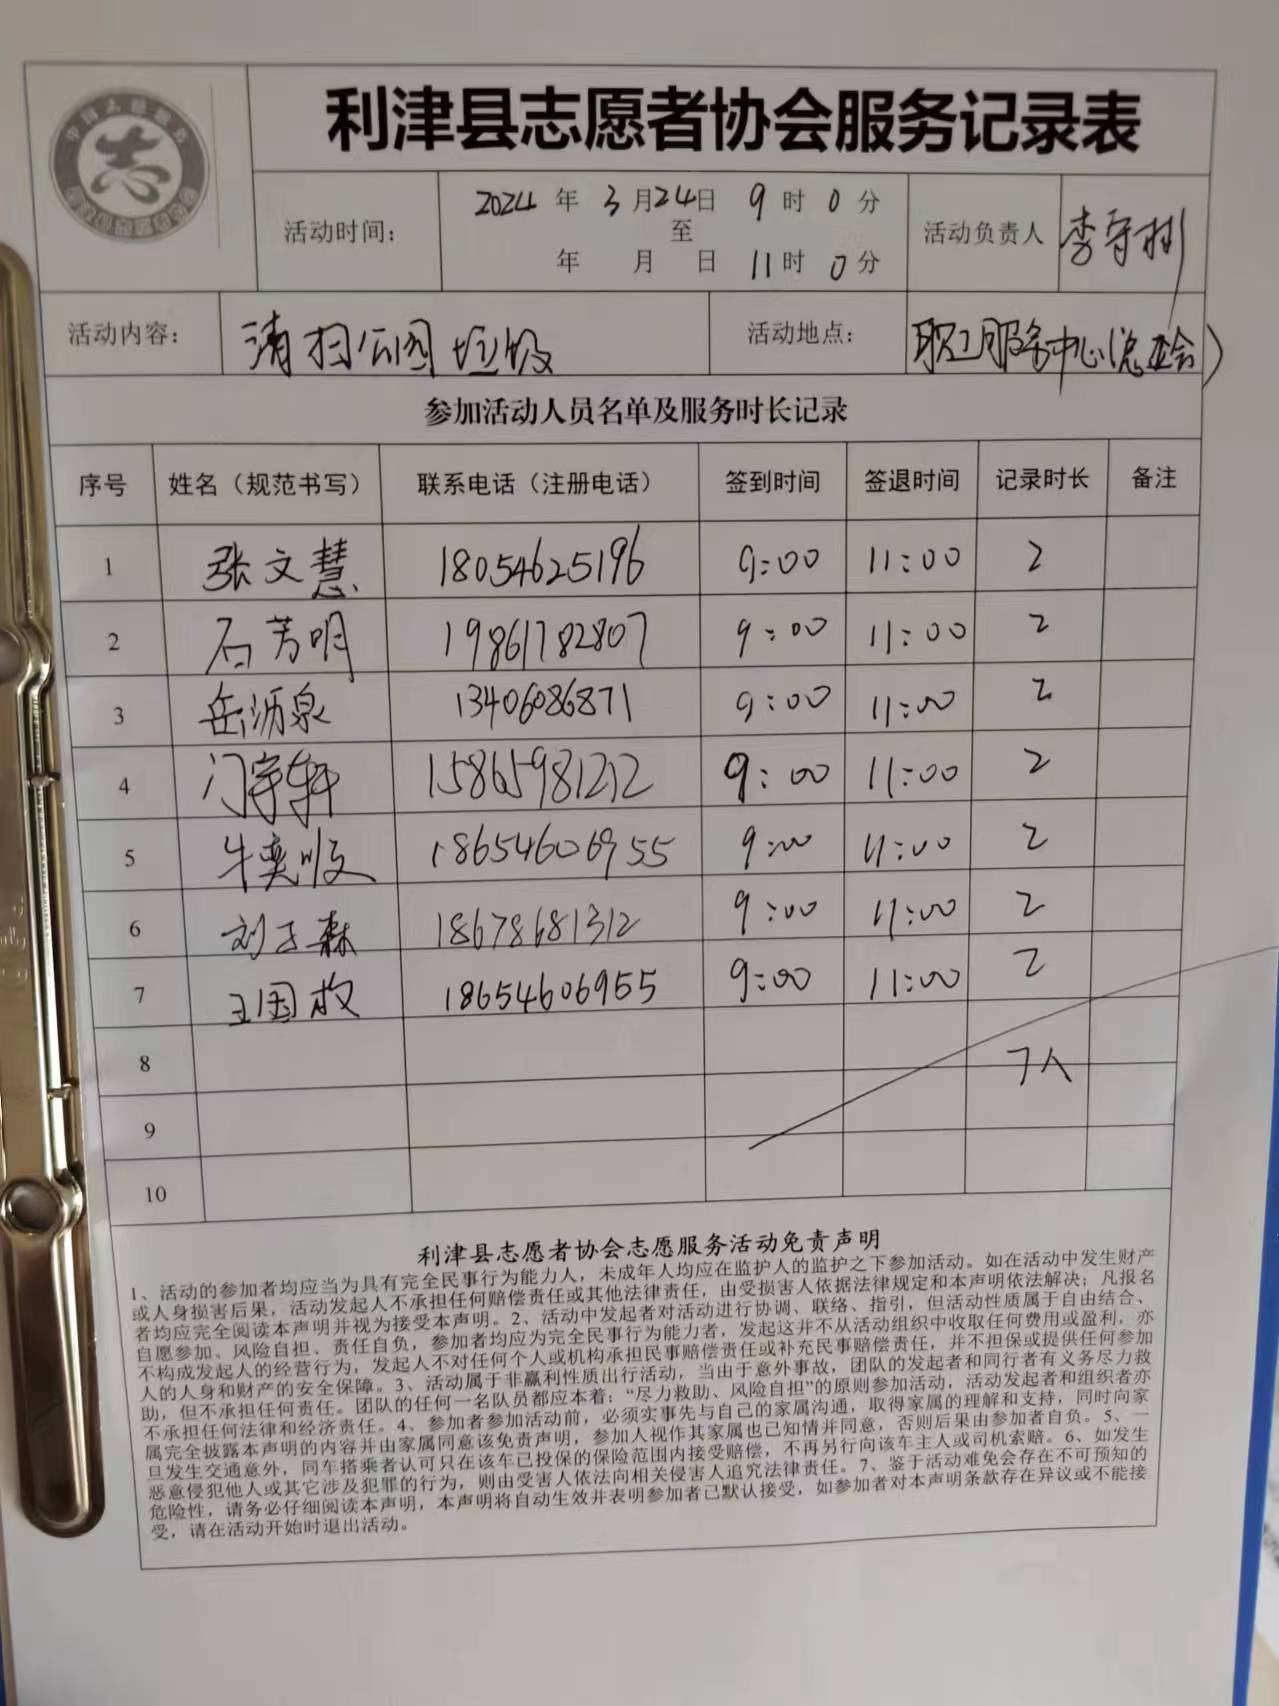 志
利津县志愿者协会服务记录表
活动时间：
2024 年 3 月 24 日 9 时 0 分
至
年 月 日 11 时 0 分
活动负责人
李守彬
活动内容：
清扫公园垃圾
活动地点：
职工服务中心(总工会)
参加活动人员名单及服务时长记录
序号 姓名（规范书写） 联系电话（注册电话） 签到时间 签退时间 记录时长 备注
1 张文慧 18054625196 9:00 11:00 2
2 石芳明 19861782807 9:00 11:00 2
3 岳沥泉 13406086871 9:00 11:00 2
4 门宇轩 15865981212 9:00 11:00 2
5 牛奕 18654606955 9:00 11:00 2
6 刘子森 18678681312 9:00 11:00 2
7 王国枚 18654606955 9:00 11:00 2
8 7人
9
10
利津县志愿者协会志愿服务活动免责声明
1、活动的参加者均应当为具有完全民事行为能力人，未成年人均应在监护人的监护之下参加活动。如在活动中发生财产
或人身损害后果，活动发起人不承担任何赔偿责任或其他法律责任，由受损害人依据法律规定和本声明依法解决；凡报名
者均应完全阅读本声明并视为接受本声明。2、活动中发起者对活动进行协调、联络、指引，但活动性质属于自由结合、
自愿参加、风险自担、责任自负，参加者均应为完全民事行为能力者，发起这并不从活动组织中收取任何费用或盈利，亦
不构成发起人的经营行为，发起人不对任何个人或机构承担民事赔偿责任或补充民事赔偿责任，并不担保或提供任何参加
人的人身和财产的安全保障。3、活动属于非赢利性质出行活动，当由于意外事故，团队的发起者和同行者有义务尽力救
助，但不承担任何责任。团队的任何一名队员都应本着：“尽力救助、风险自担”的原则参加活动，活动发起者和组织者亦
不承担任何法律和经济责任。4、参加者参加活动前，必须实事先与自己的家属沟通，取得家属的理解和支持，同时向家
属完全披露本声明的内容并由家属同意该免责声明，参加人视作其家属也已知情并同意，否则后果由参加者自负。5、一
旦发生交通意外，同车搭乘者认可只在该车已投保的保险范围内接受赔偿，不再另行向该车主人或司机索赔。6、如发生
恶意侵犯他人或其它涉及犯罪的行为，则由受害人依法向相关侵害人追究法律责任。7、鉴于活动难免会存在不可预知的
危险性，请务必仔细阅读本声明，本声明将自动生效并表明参加者已默认接受，如参加者对本声明条款存在异议或不能接
受，请在活动开始时退出活动。